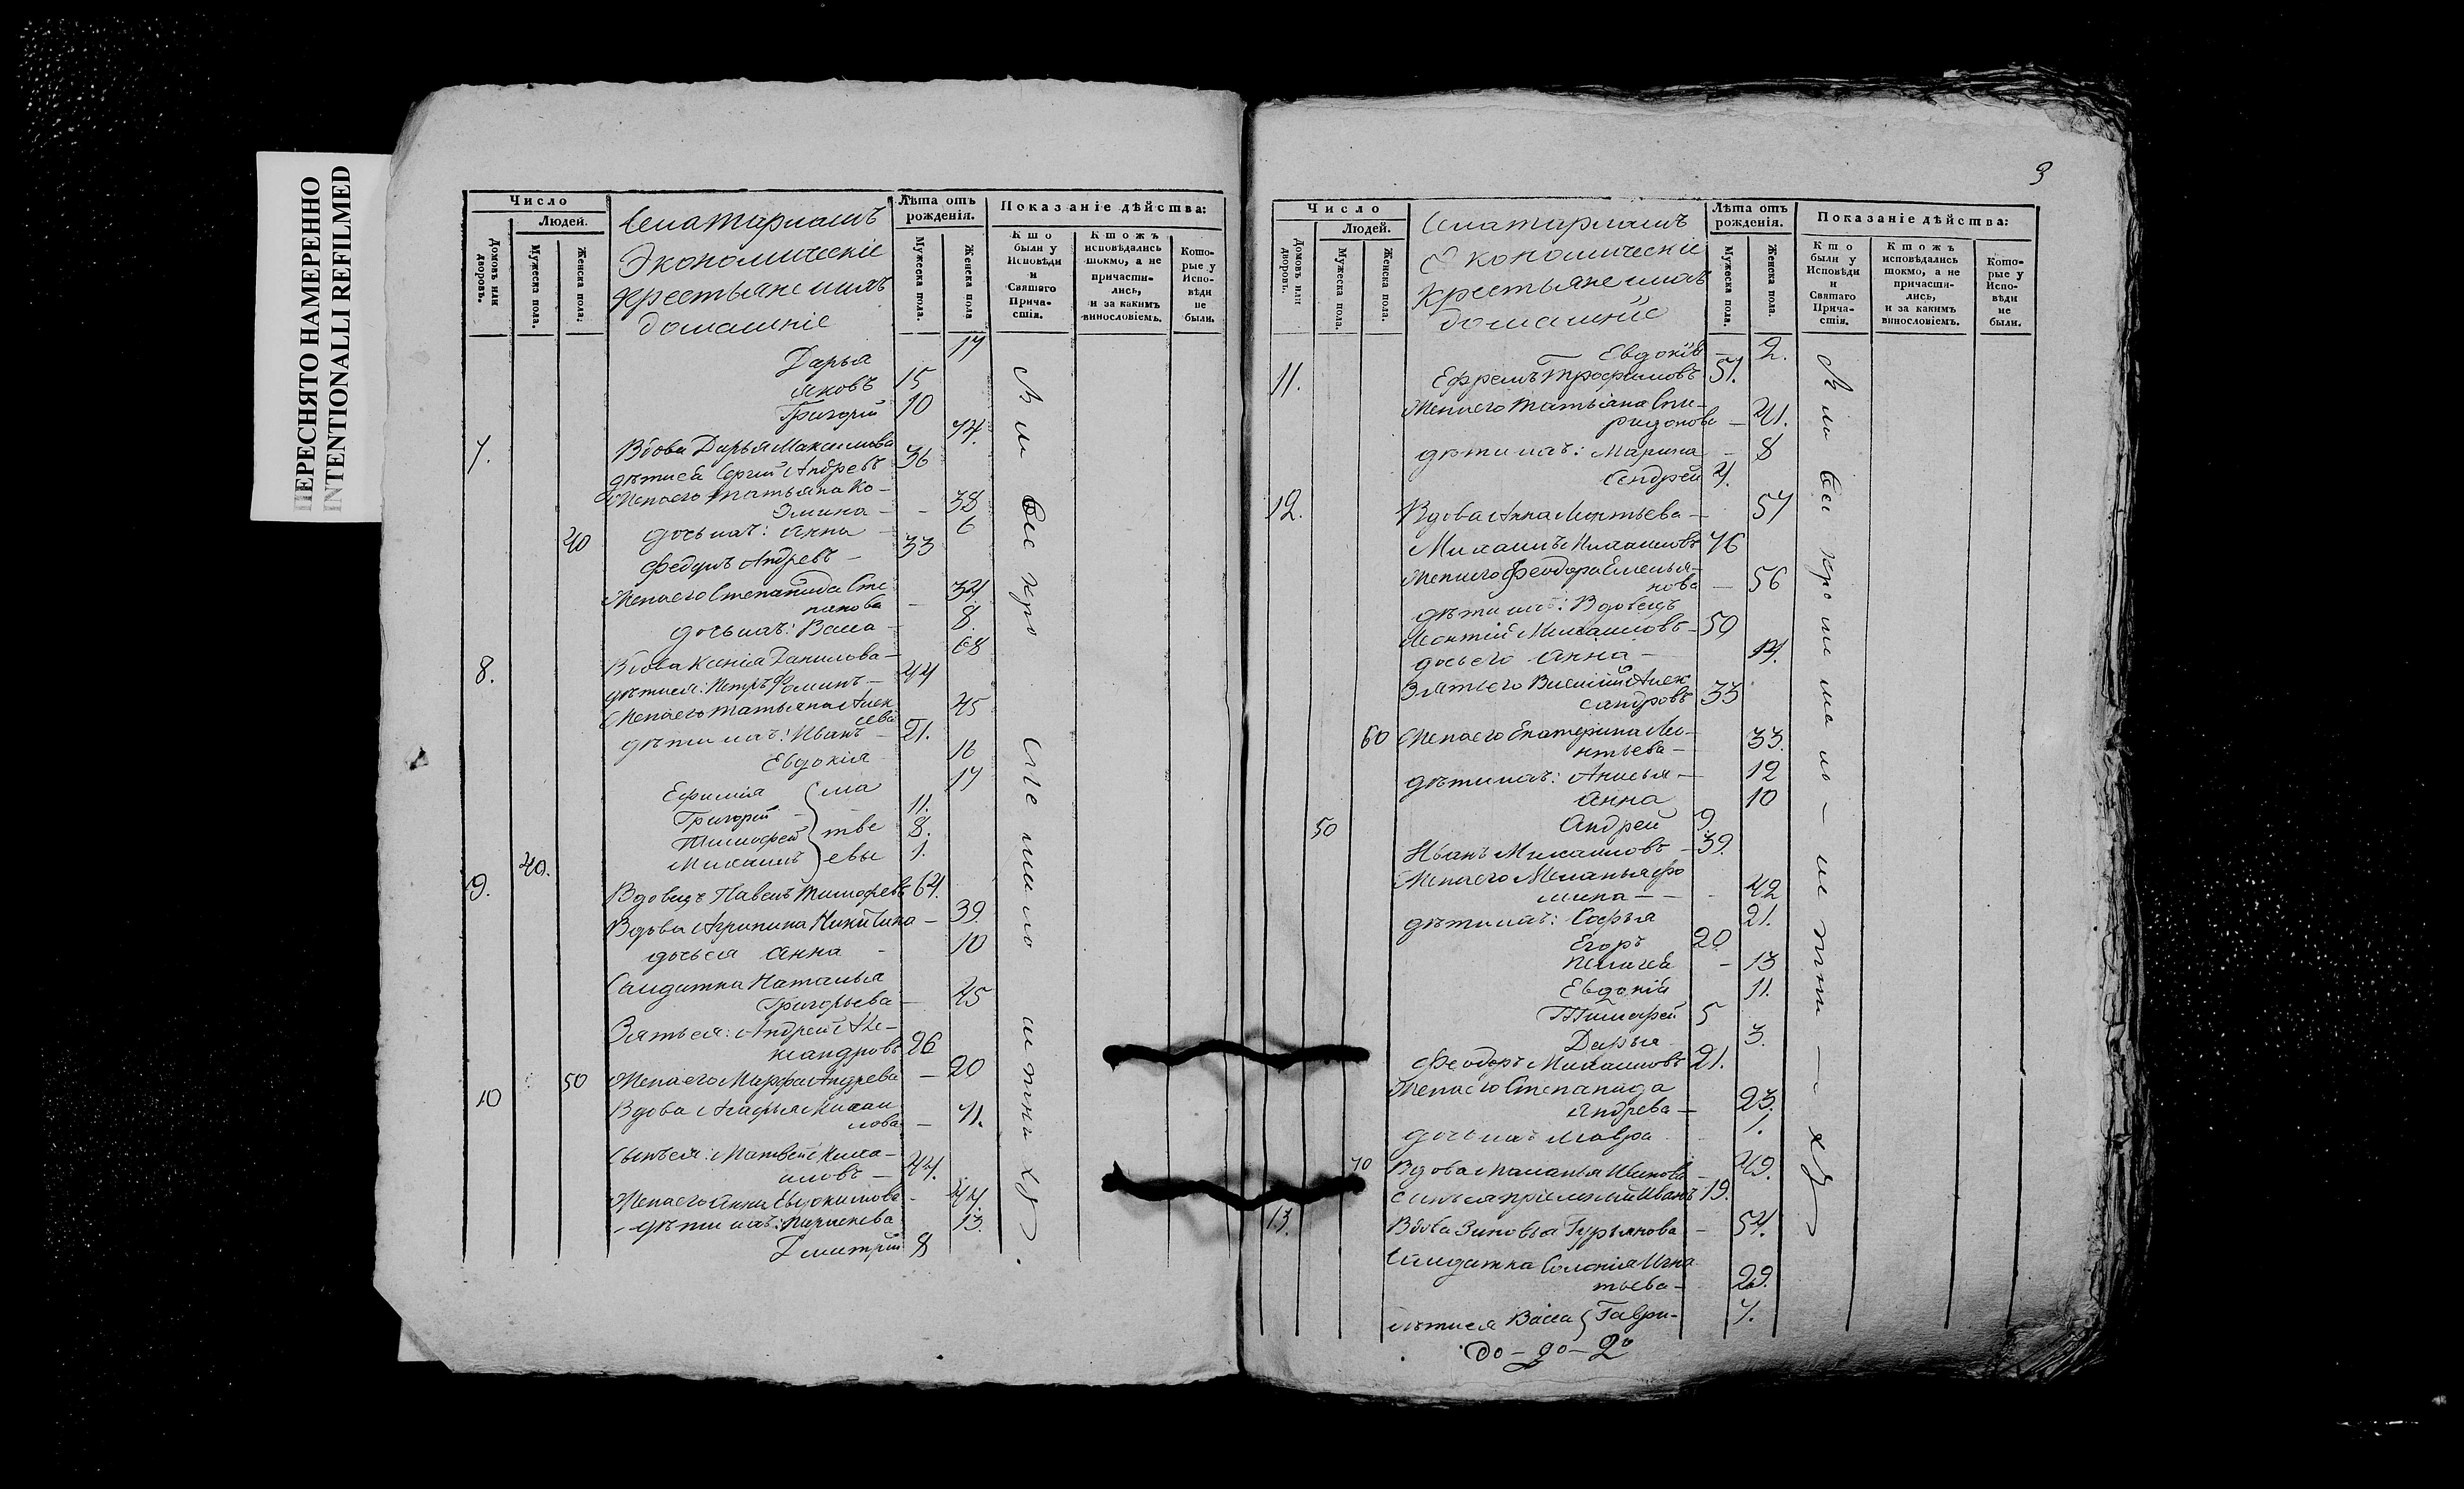 ПЕРЕСНЯТО НАМЕРЕННО
INTENTIONALLI REFILMED
Число
Людей.
Домовъ или дворовъ.
Мужеска пола.
Женска пола.
Экономическіе
крестьяне ихъ
домашніе
Лѣта отъ рожденія.
Мужеска пола.
Женска пола
Показаніе дѣйства:
Кто были у Исповѣди и Святаго Причастія.
Ктожъ исповѣдались токмо, а не причастились, и за какимъ винословіемъ.
Которые у Исповѣди не были.
Дарья 17
Яковъ 15
Григорій 10
7. Вдова Дарья Максимова 74.
дѣти ея Сергій Андреевъ 36
Жена его Татьяна Ко-
змина - 38
40 дочь ихъ: Анна - 6
Федулъ Андреевъ - 33
Жена его Степанида Сте
панова - 34
дочь ихъ: Васса - 8
8. Вдова Ксенія Данилова - 68
дѣти ея: Петръ Фоминъ - 44
Жена его Татьяна Алек
сева 45
дѣти ихъ: Иванъ - 21.
Евдокія 16
Ефимія 17
Григорій 11.
Тимофей 8.
40. Михаилъ 1.
матвеевы
9. Вдовецъ Павелъ Тимофеевъ 64.
Вдова Агрипина Никитина - 39.
дочь ея Анна - 10
Салдатка Наталья
Григорьева - 45
Зять ея: Андрей Але-
ксандровъ 26
50 Жена его Марфа Андреева - 20
10 Вдова Агафья Михаи
лова - 71.
Сынъ ея: Матвей Миха-
иловъ - 44.
Жена его Анна Евдокимова - 44.
дѣти ихъ: Парискева 13
Дмитрій 8
3
Число
Людей.
Домовъ или дворовъ.
Мужеска пола.
Женска пола.
Экономическіе
Крестьяне ихъ
домашніе
Лѣта отъ рожденія.
Мужеска пола.
Женска пола.
Показаніе дѣйства:
Кто были у Исповѣди и Святаго Причастія.
Ктожъ исповѣдались токмо, а не причастились, и за какимъ винословіемъ.
Которые у Исповѣди не были.
Евдокія - 2.
11. Ефремъ Трофимовъ 51.
Жена его Татьяна Спи-
ридонова - 41.
дѣти ихъ: Марина - 8
Андрей 4.
12. Вдова Анна Леонтьева - 57
Михаилъ Михаиловъ 76
Жена его Феодора Емелья-
нова - 56
дѣти ихъ: Вдовецъ
Леонтій Михаиловъ - 50
дочь его Анна - 14.
Зять его Василій Алек
сандровъ 33
60 Жена его Екатерина Ле-
нтьева - 33.
дѣти ихъ: Анисья - 12
Анна 10
50 Андрей 9.
Иванъ Михаиловъ - 39.
Жена его Меланья Фо
мина - - 42
дѣти ихъ: Софья 21.
Егоръ 20
Пелагея - 13
Евдокія 11.
Тимофей 5
Дарья 3.
Феодоръ Михаиловъ 21.
Жена его Степанида
Андреева - 23.
дочь ихъ Мавра 1.
70 Вдова Маланья Иванова - 49.
сынъ ея пріемный Иванъ 19.
13. Вдова Зиновья Гурьянова - 54.
Салдатка Соломія Игна
тьева - 29.
дѣти ея Васса Гаври- 7.